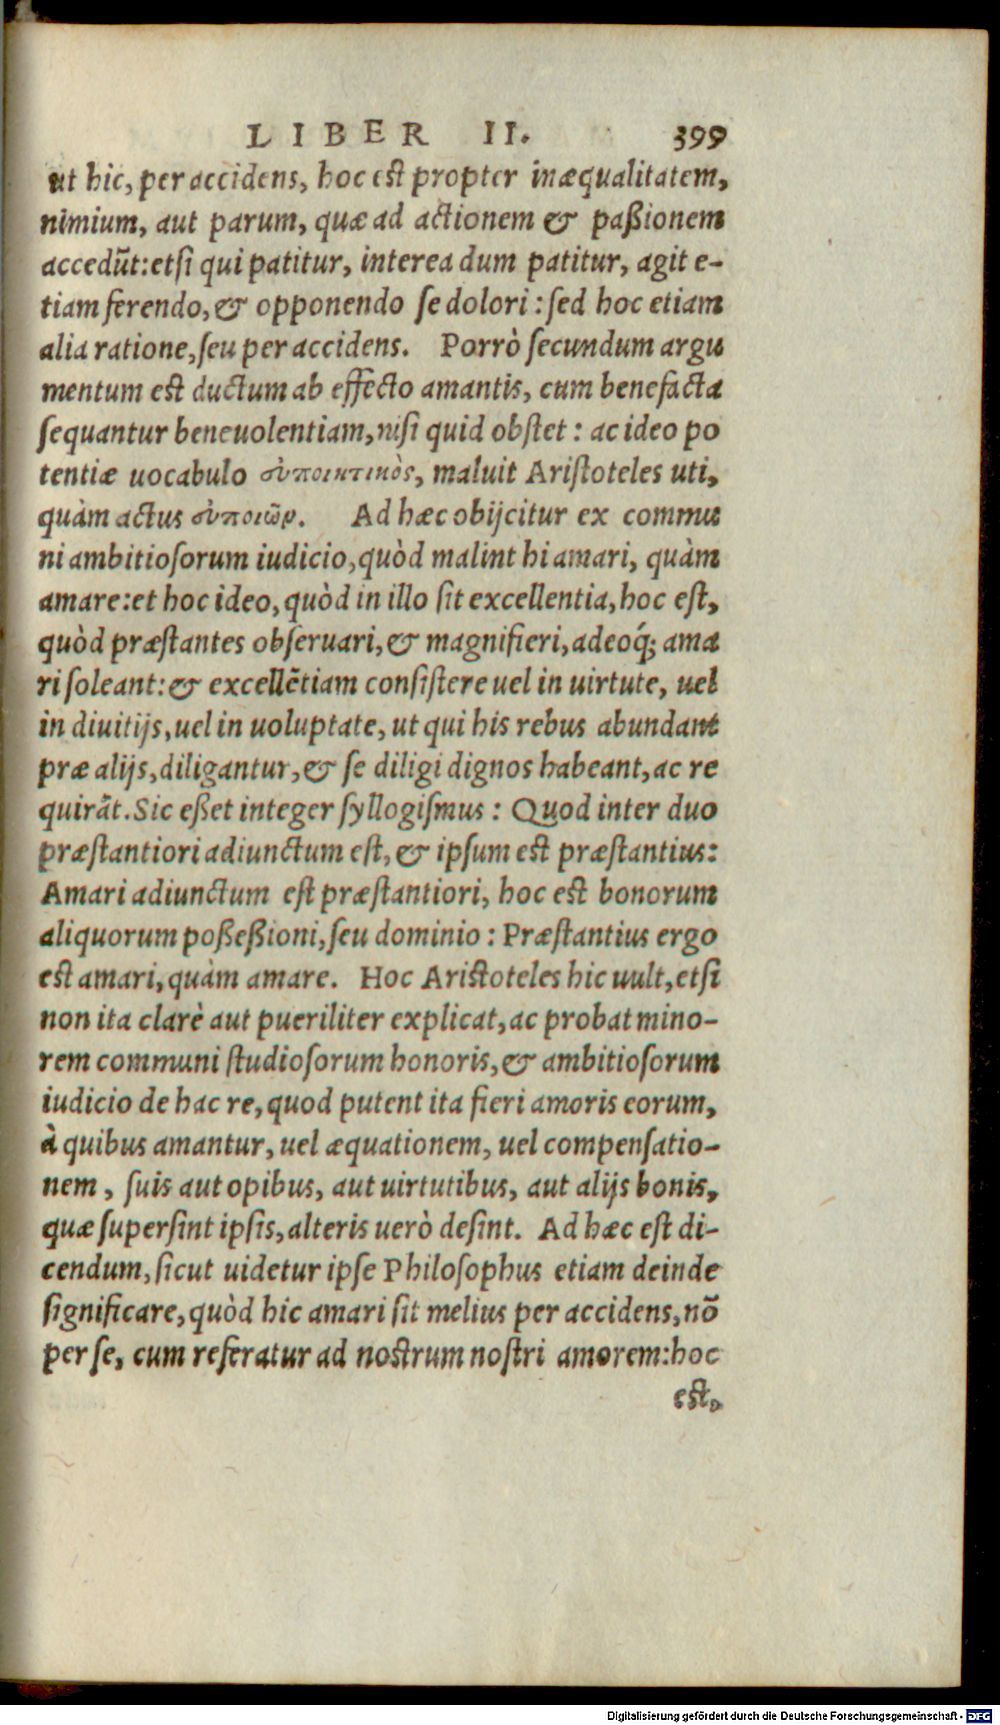 LIBER II. 399
ut hic, per accidens, hoc est propter inæqualitatem,
nimium, aut parum, quæ ad actionem & paßionem
accedũt: etsi qui patitur, interea dum patitur, agit e-
tiam ferendo, & opponendo se dolori: sed hoc etiam
alia ratione, seu per accidens. Porrò secundum argu
mentum est ductum ab effecto amantis, cum benefacta
sequantur beneuolentiam, nisi quid obstet: ac ideo po
tentiæ uocabulo εὐποιητικὸς, maluit Aristoteles uti,
quàm actus εὐποιῶν. Ad hæc obijcitur ex commu
ni ambitiosorum iudicio, quòd malint hi amari, quàm
amare: et hoc ideo, quòd in illo sit excellentia, hoc est,
quòd præstantes obseruari, & magnifieri, adeoq́; ama
ri soleant: & excellẽtiam consistere uel in uirtute, uel
in diuitijs, uel in uoluptate, ut qui his rebus abundant
præ alijs, diligantur, & se diligi dignos habeant, ac re
quirãt. Sic eßet integer syllogismus: Quod inter duo
præstantiori adiunctum est, & ipsum est præstantius:
Amari adiunctum est præstantiori, hoc est bonorum
aliquorum poßeßioni, seu dominio: Præstantius ergo
est amari, quàm amare. Hoc Aristoteles hic uult, etsi
non ita clarè aut pueriliter explicat, ac probat mino-
rem communi studiosorum honoris, & ambitiosorum
iudicio de hac re, quod putent ita fieri amoris eorum,
à quibus amantur, uel æquationem, uel compensatio-
nem, suis aut opibus, aut uirtutibus, aut alijs bonis,
quæ supersint ipsis, alteris uerò desint. Ad hæc est di-
cendum, sicut uidetur ipse Philosophus etiam deinde
significare, quòd hic amari sit melius per accidens, nõ
per se, cum referatur ad nostrum nostri amorem: hoc
est,
Digitalisierung gefördert durch die Deutsche Forschungsgemeinschaft - DFG